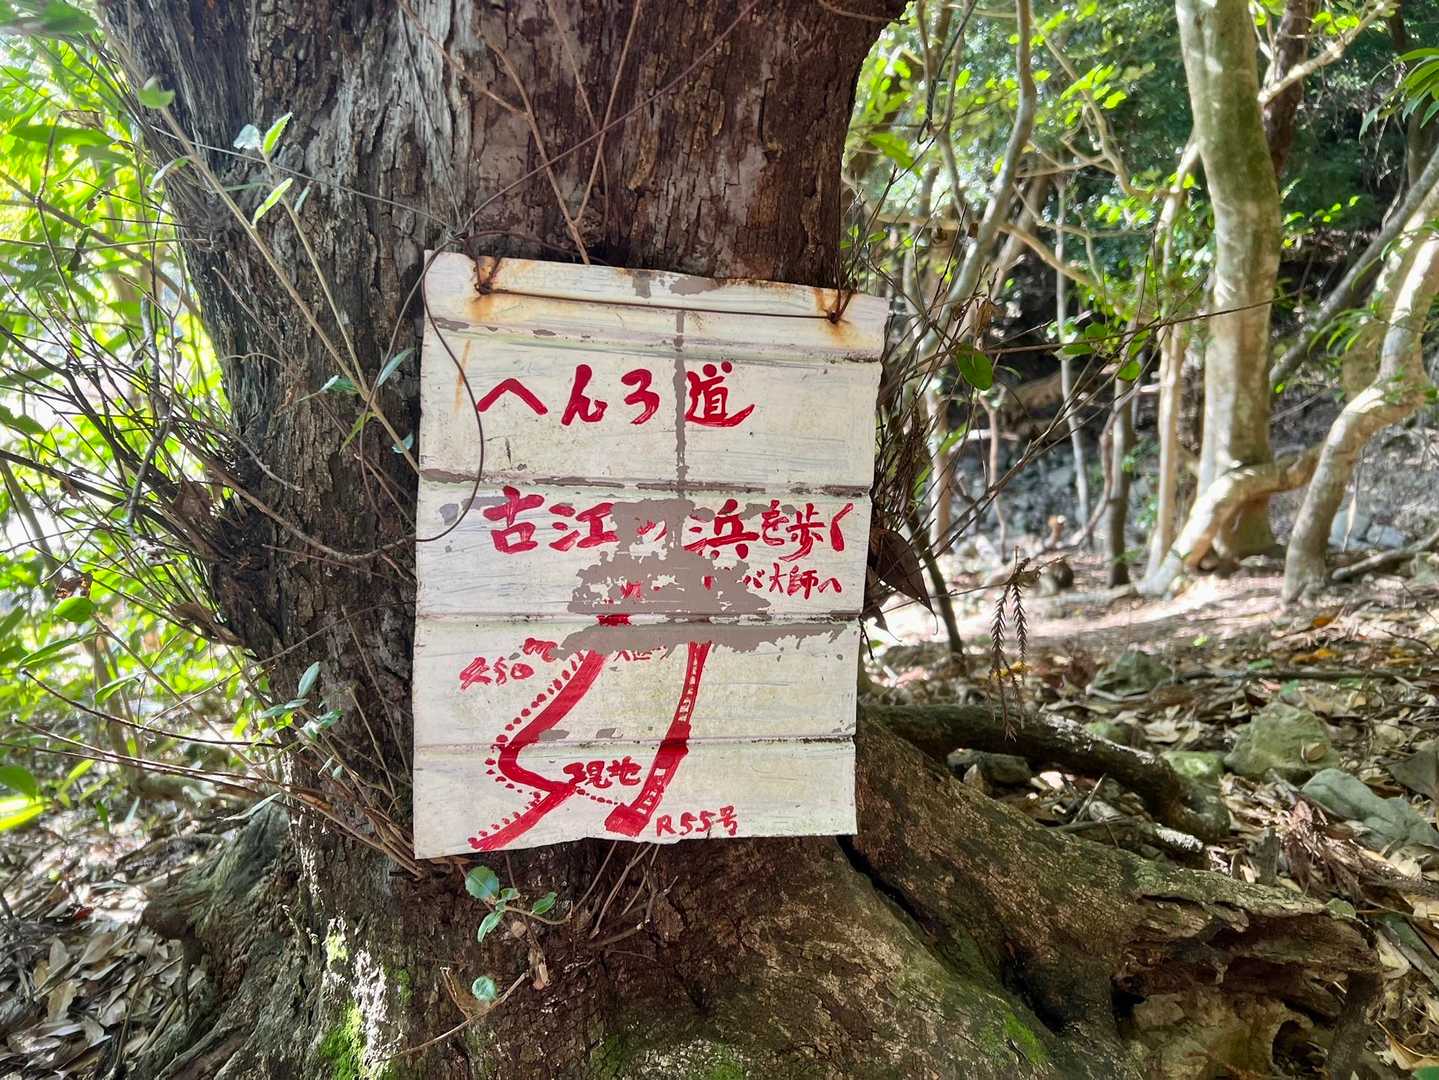 へんろ道
古江の浜を歩く
バ大師へ
450m
現地
R55号